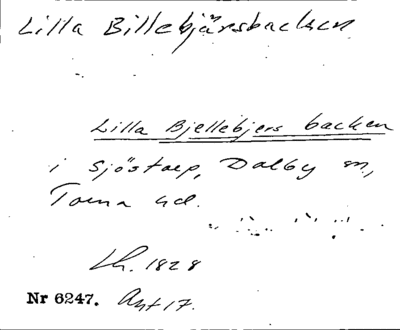 Lilla Billebjärsbacken
Lilla Bjellebjers backen
i Sjöstorp, Dalby sn,
Torna hd.
Lh. 1828
Nr 6247. Akt 17.